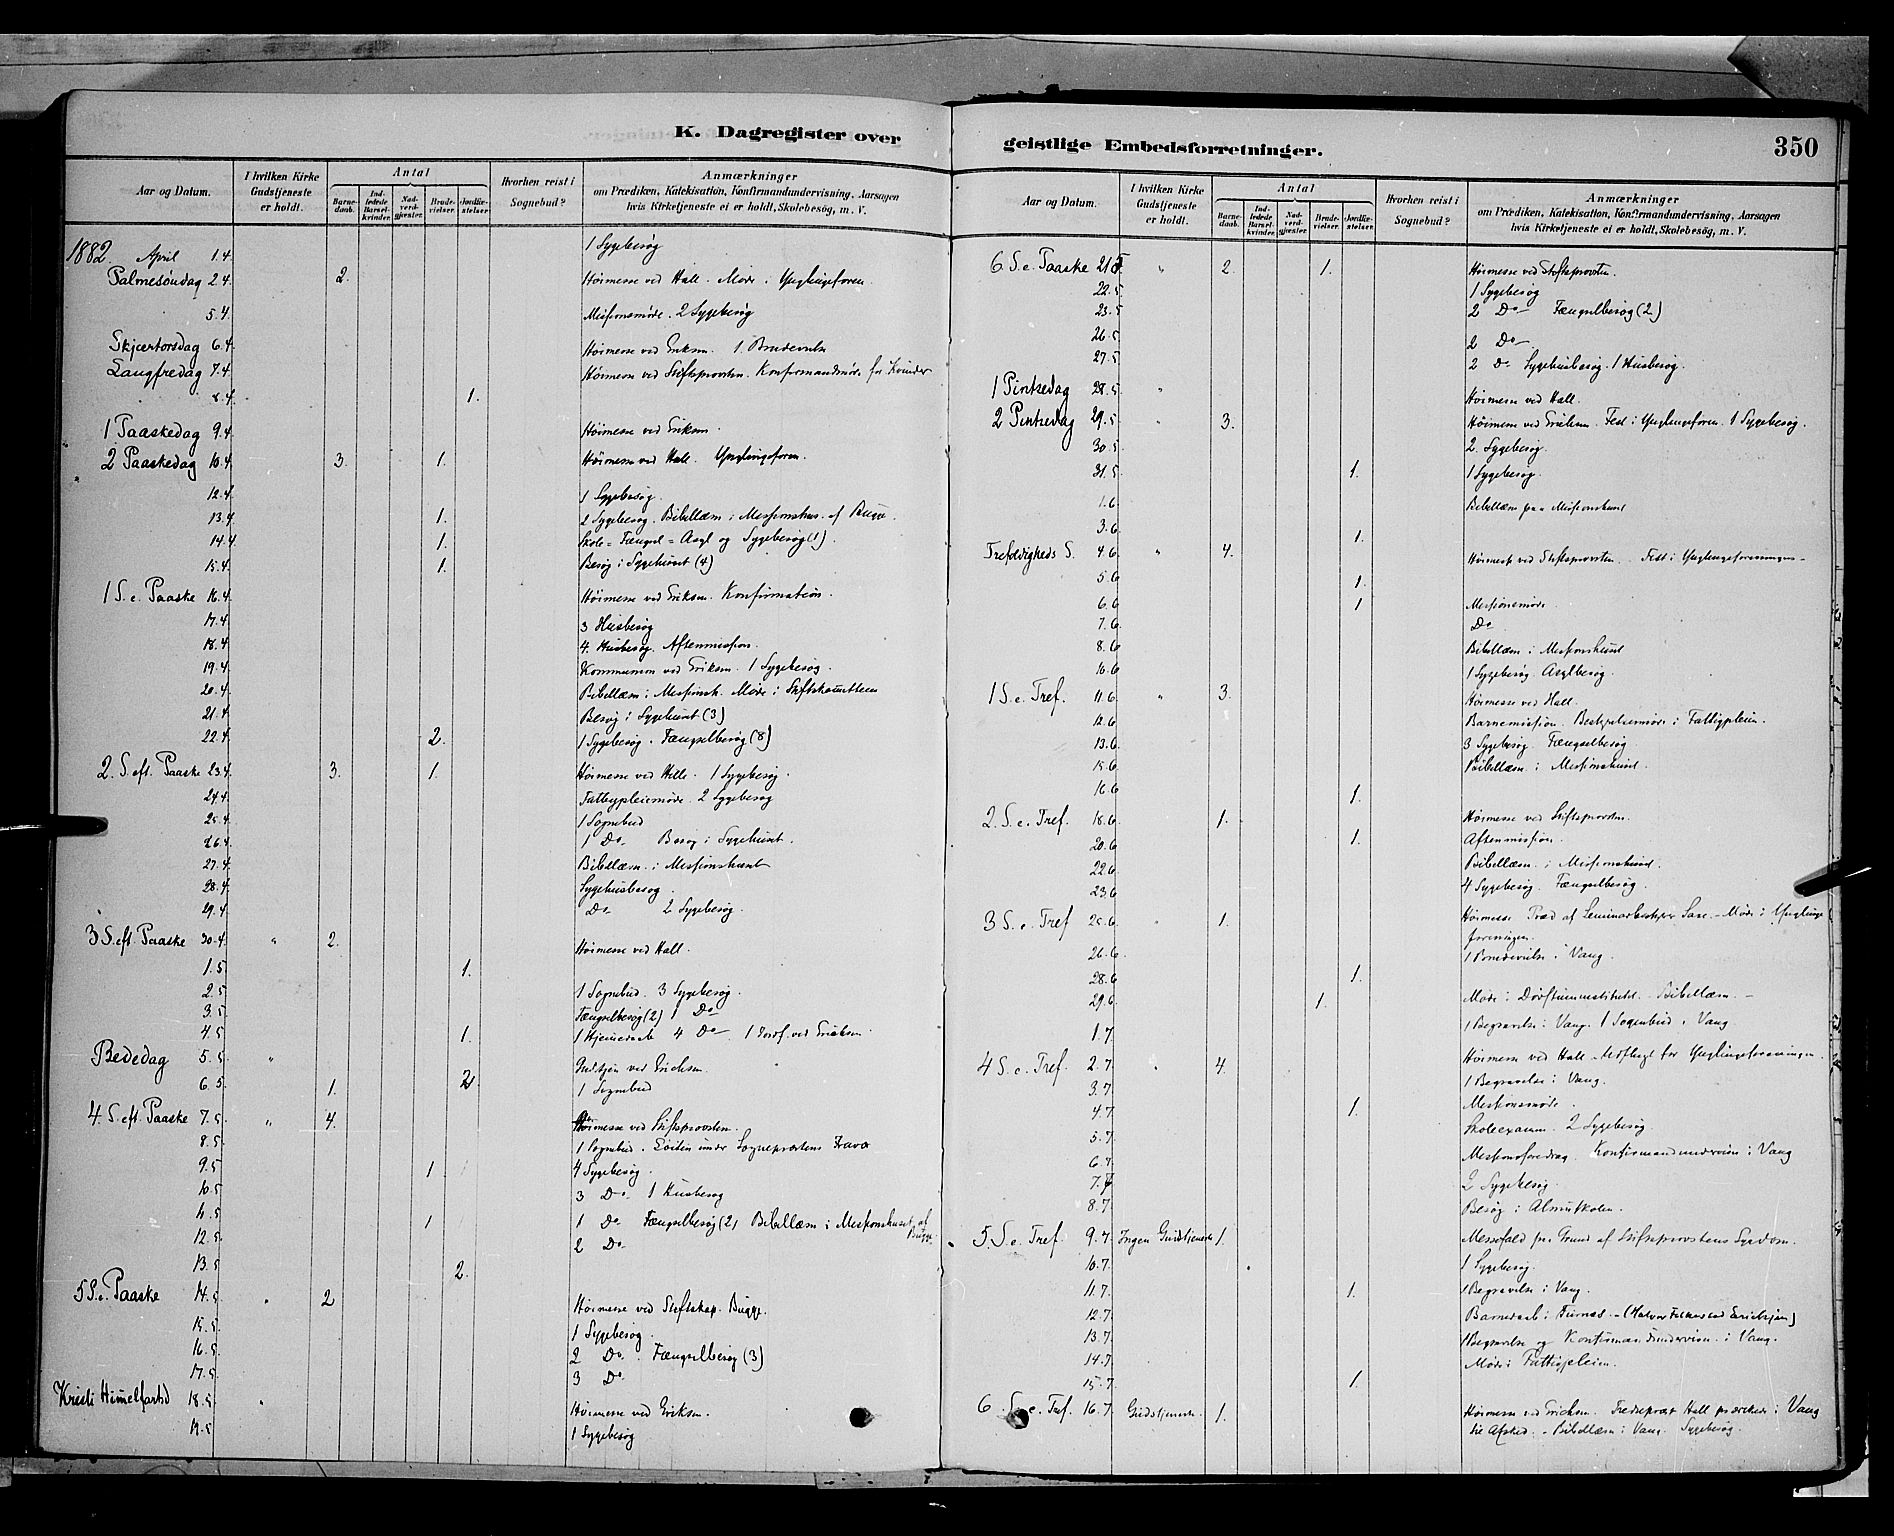 K. Dagregister over
Aar og Datum. I hvilken Kirke Gudstjeneste er holdt. Antal Barnedaab. Indledede Barselkvinder. Nadverdgjester. Brudevielser. Jordfæstelser. Hvorhen reist i Sognebud? Anmærkninger
om Prædiken, Katekisation, Konfirmandundervisning, Aarsagen
hvis Kirketjeneste ei er holdt, Skolebesøg, m. V.
1882. April 1.4. 1 Sygebesøg
Palmesøndag 2.4. 2. Høimesse ved Hall. Møde i Ynglingeforen.
5.4. Missionsmøde. 2 Sygebesøg
Skjærtorsdag 6.4. Høimesse ved Eriksen. 1 Brudevielse
Langfredag 7.4. Høimesse ved Stiftsprovsten. Konfirmandmøde for Kvinder
8.4. 1.
1 Paaskedag 9.4. Høimesse ved Eriksen.
2 Paaskedag 10.4. 3. 1. Høimesse ved Hall. Ynglingeforen.
12.4. 1 Sygebesøg.
13.4. 1. 2 Sygebesøg. Bibellæsn. i Missionshus. af Bugge.
14.4. 1. Skole- Fængsel- Asyl og Sygebesøg (1).
15.4. 1. Besøg i Sygehuset (4)
1 S. e. Paaske 16.4. Høimesse ved Eriksen. Konfirmation.
17.4. 3 Husbesøg
18.4. 4. Husbesøg. Aftenmission.
19.4. Kommunion ved Eriksen. 1 Sygebesøg.
20.4. Bibellæsn. i Missionsh. Møde i Stiftskomitteen
21.4. Besøg i Sygehuset (3)
22.4. 2. 1 Sygebesøg. Fængselbesøg (8)
2. S. eft. Paaske 23.4. 3. 1. Høimesse ved Hille. 1 Sygebesøg.
24.4. Fattigpleiemøde. 2 Sygebesøg
25.4. 1 Sognebud
26.4. 1 Do Besøg i Sygehuset.
27.4. Bibellæsn. i Missionshuset
28.4. Sygehusbesøg.
29.4. Do 2 Sygebesøg.
3 S. eft. Paaske 30.4. " 2. Høimesse ved Hall.
1.5 1.
2.5 1 Sognebud. 3 Sygebesøg.
3.5 Fængselbesøg (2) 1 Do
4.5 1. 1 Hjemmedaab 4 Do 1 Jordf. ved Eriksen.
Bededag 5.5. " Gudstjen ved Erichsen.
6.5. 1. 2. 1 Sognebud
4. S. eft. Paaske 7.5. " 4. Høimesse ved Stiftsprovsten.
8.5. 1 Sognebud. under Sogneprestens Fravær
9.5 1 4 Sygebesøg.
10.5 3 Do 1 Husbesøg
11.5. 1 1 Do Fængselbesøg (2) Bibellæsn i Missionshuset af Bugge.
12.5. 2 Do
13.5 2.
5 S. e. Paaske 14.5 " 2 Høimesse ved Stiftskap. Bugge.
15.5. 1 Sygebesøg.
16.5. 2 Do. Fængselbesøg (3)
17.5. 3 Do
Kristi Himmelfartsd 18.5. " Høimesse ved Eriksen.
19.5 1 Sygebesøg
geistlige Embedsforretninger. 350
Aar og Datum. I hvilken Kirke Gudstjeneste er holdt. Antal Barnedaab. Indledede Barselkvinder. Nadverdgjester. Brudevielser. Jordfæstelser. Hvorhen reist i Sognebud? Anmærkninger
om Prædiken, Katekisation, Konfirmandundervisning, Aarsagen
hvis Kirketjeneste ei er holdt, Skolebesøg, m. V.
6. S. e. Paaske 21.5 " 2. 1. Høimesse ved Stiftsprovsten.
22.5 1 Sygebesøg
23.5 2 Do Fængselbesøg (2)
26.5 2 Do
27.5 2 Do Sygehusbesøg. 1 Husbesøg.
1 Pintsedag 28.5 " Høimesse ved Hall.
2 Pintsedag 29.5 " 3. Høimesse ved Eriksen. Fest i Ynglingeforen. 1 Sygebesøg.
30.5 2. Sygebesøg.
31.5 1. 1 Sygebesøg.
1.6 Bibellæsn paa Missionshuset
3.6 1.
Trefoldigheds S. 4.6 " 4. Høimesse ved Stiftsprovsten. Fest i Ynglingeforeningen
5.6 1.
6.6 1 Missionsmøde.
7.6 Do
8.6 Bibellæsn i Missionshuset
10.6 1 Sygebesøg. Asylbesøg.
1 S. e. Tref. 11.6 " 3. Høimesse ved Hall.
12.6 Barnemission. Bestyrelsemøde i Fattigpleien.
13.6 3 Sygebesøg. Fængselbesøg
15.6 Bibellæsn. i Missionshuset.
16.6 1.
2. S. e. Tref. 18.6 1. Høimesse ved Stiftsprovsten.
20.6 1. Aftenmission.
22.6 Bibellæsn. i Missionshuset.
23.6 4 Sygebesøg. Fængselbesøg.
3 S. e. Tref 25.6 " 1. Høimesse Præd af Seminarbestyrer Møde i Ynglinge
foreningen.
26.6. 1 Brudevielse i Vang.
28.6 1.
29.6 1. Møde i Døvstummeinstitutet. Bibellæsn.
1.7 1 Begravelse i Vang. 1 Sognebud i Vang
4 S. e. Tref. 2.7 " 4. Høimesse ved Hall. Udflugt for Ynglingeforeningen.
3.7 1 Begravelse i Vang.
4.7 1. Missionsmøde.
5.7 Skoleexamen. 2 Sygebesøg.
6.7 Missionsforedrag. Konfirmandundervisn. i Vang
7.7 2 Sygebesøg.
8.7. Besøg i Almueskolen.
5. S. e. Tref 9.7 Ingen Gudstjeneste 1. Messefald pa. Grund af Stiftsprovstens Sygdom.
10.7. 1 Sygebesøg.
11.7. 1. 1 Begravelse i Vang.
12.7. Barnedaab i Furnes
13.7. 1 Begravelse og Konfirmandundervisn. i Vang.
14.7. Møde i Fattigpleien.
15.7 1.
6. S. e. Tref. 16.7 Gudstjeneste. 1. Høimesse ved Erichsen. Hall i Vang
til Afsked. Bibellæsn i Vang. Sygebesøg.